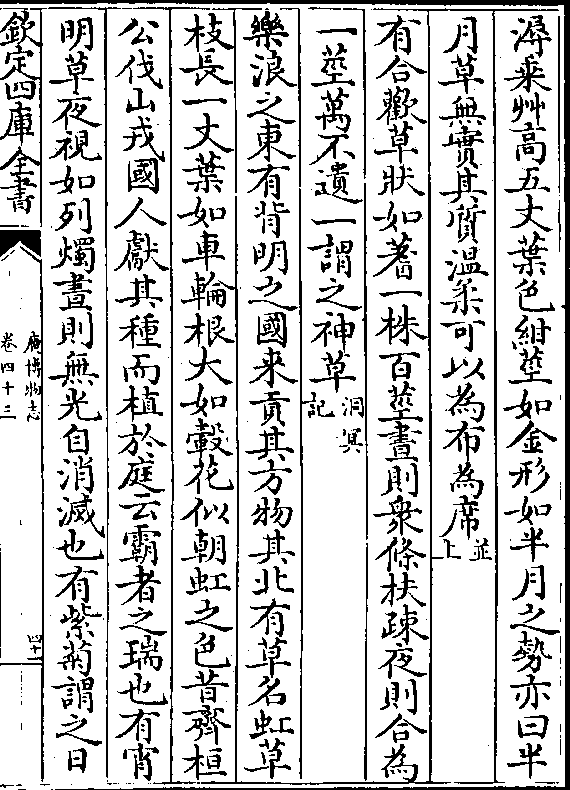 潯乘艸高五丈葉色紺莖如金形如半月之勢亦曰半
月草無實其質温柔可以為布為席並上
有合歡草狀如蓍一株百莖晝則衆條扶疎夜則合為
一莖萬不遺一謂之神草洞冥記
樂浪之東有背明之國来貢其方物其北有草名虹草
枝長一丈葉如車輪根大如轂花似朝虹之色昔齊桓
公伐山戎國人獻其種而植於庭云霸者之瑞也有宵
明草夜視如列燭晝則無光自消滅也有紫菊謂之日
欽定四庫全書
廣博物志
卷四十三
四十一